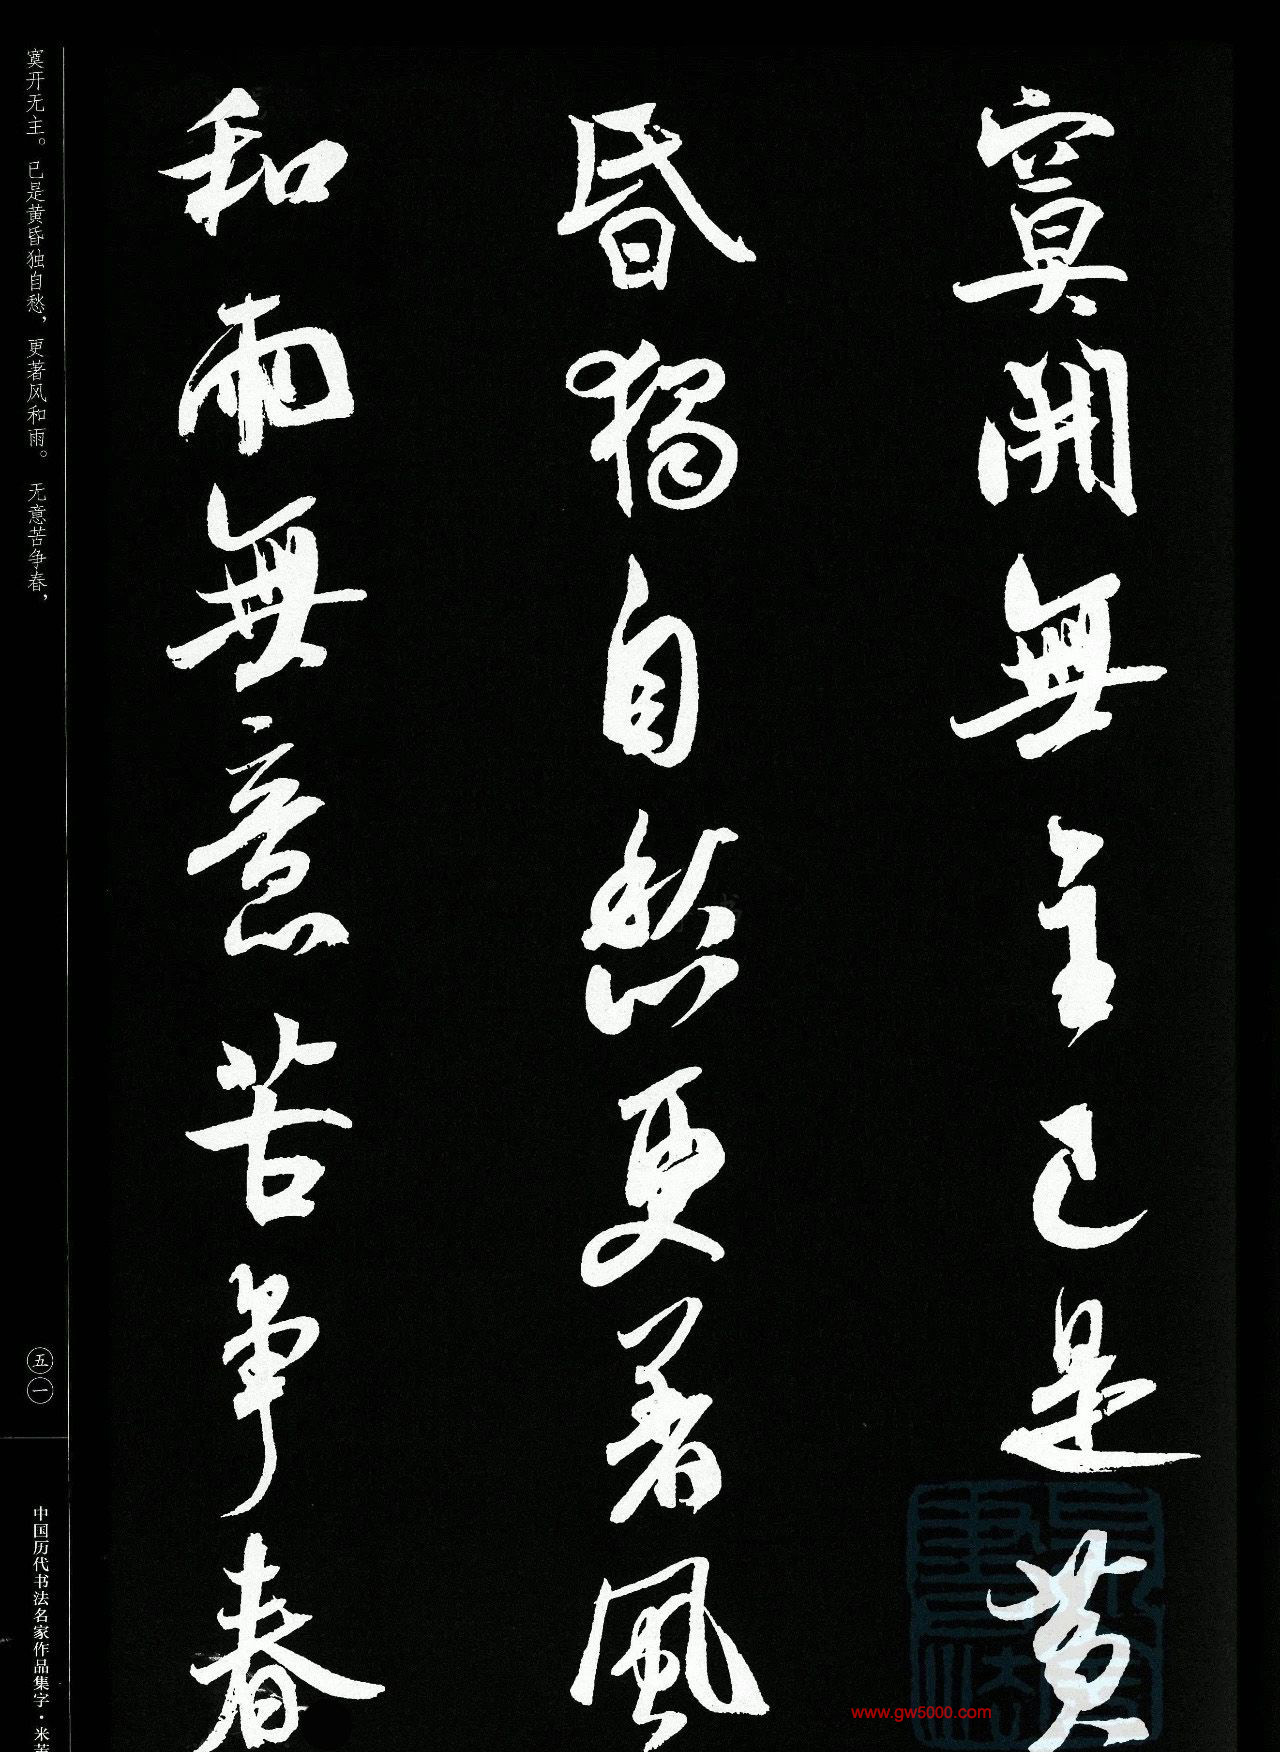 寞開無主已是黄
昏獨自愁更著風
和雨無意苦争春
寞开无主。已是黄昏独自愁，更著风和雨。无意苦争春，
五一
中国历代书法名家作品集字·米芾
www.gw5000.com